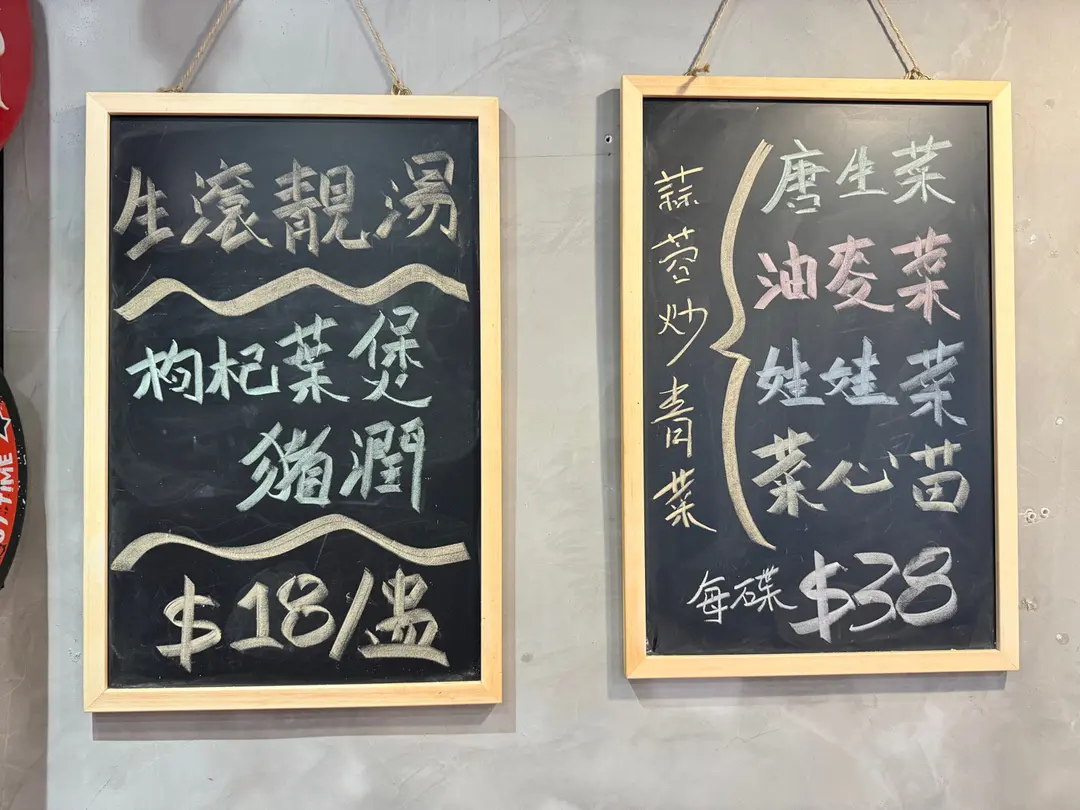 生滾靚湯
枸杞葉煲
豬潤
$18/盅
蒜蓉炒青菜
唐生菜
油麥菜
娃娃菜
菜心苗
每碟$38
TIME